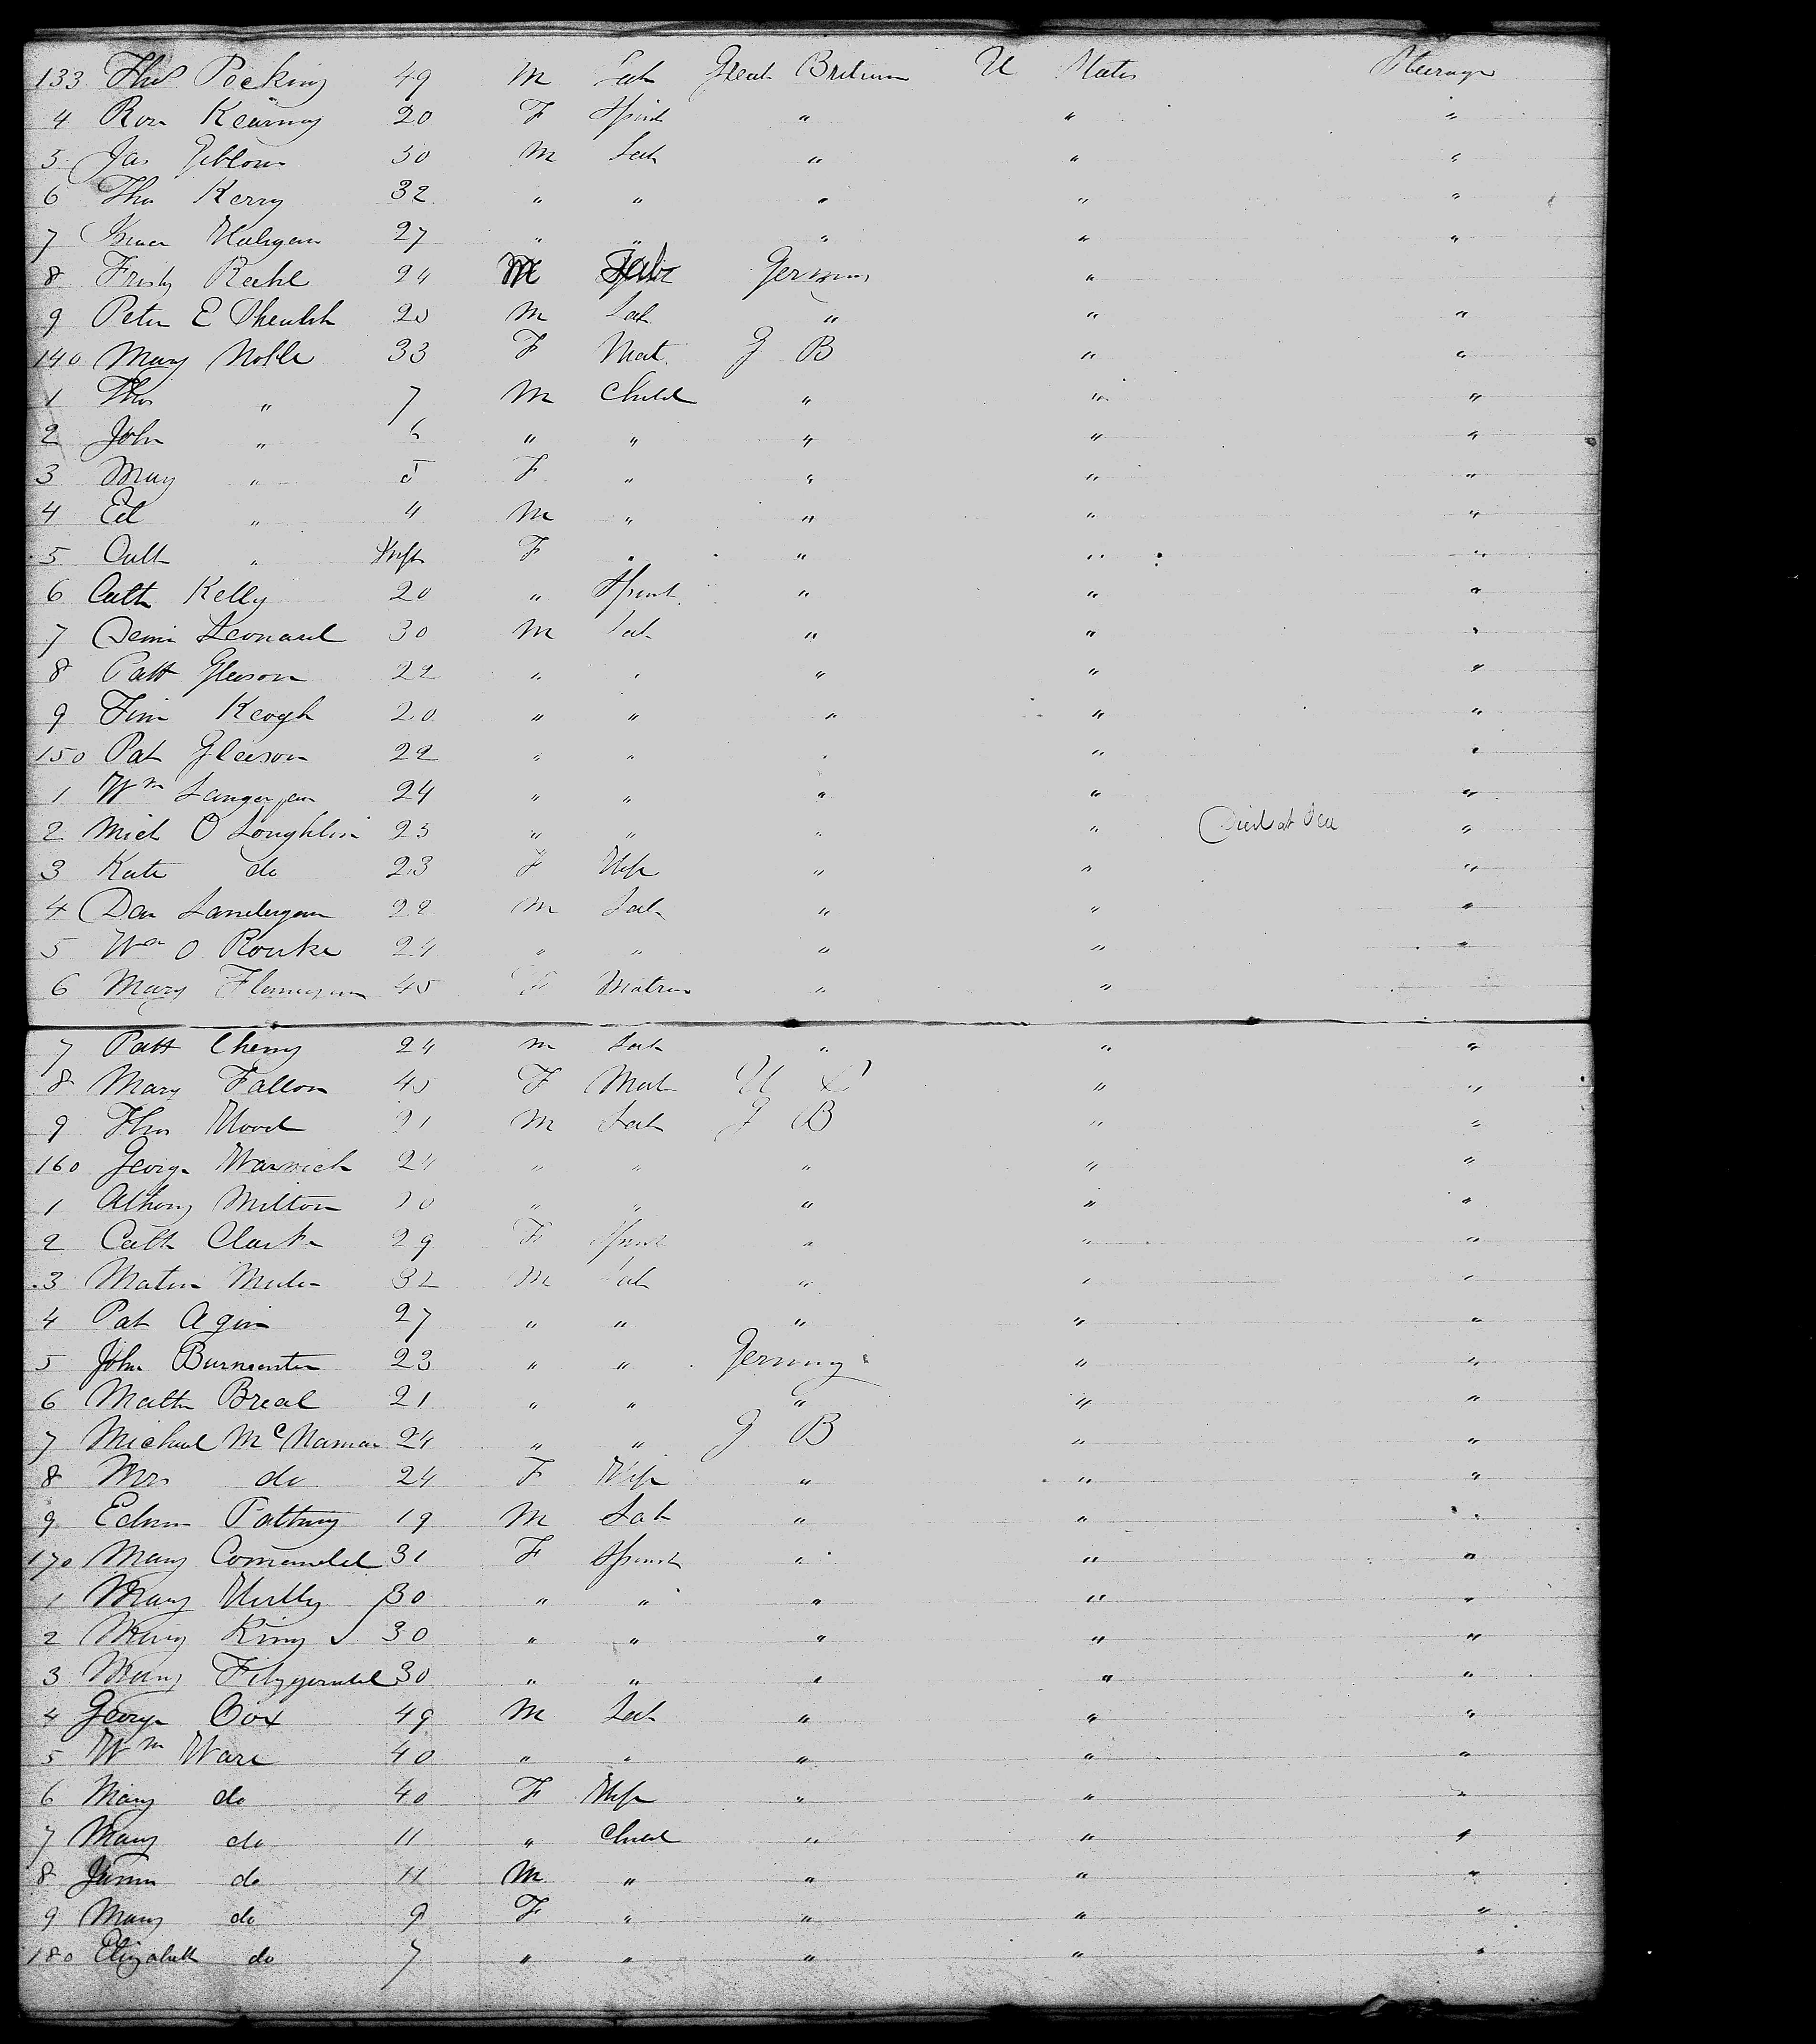 133 Thos Pocking 49 M Lab Great Britain U States Steerage
4 Rose Kearney 20 F Spinst " " "
5 Jas Giblow 50 M Lab " " "
6 Thos Kerry 32 " " " " "
7 27 " " " " "
8 24 M Lab Germany "
9 Peter E 20 M Lab " " "
140 Mary Noble 33 F Mat. G B " "
1 Thos " 7 M Child " " "
2 John " 6 " " " " "
3 Mary " 5 F " " " "
4 Ed " 4 M " " " "
5 Cath " Inft F " " " "
6 Cath Kelly 20 " Spinst " " "
7 Denis Leonard 30 M Lab " " "
8 Patt Gleeson 22 " " " " "
9 Tim Keogh 20 " " " " "
150 Pat Gleeson 22 " " " " "
1 Wm 24 " " " " "
2 Mich O Loughlin 25 " " " " Died at Sea "
3 Kate do 23 F Wife " " "
4 Dan Landergan 22 M Lab " " "
5 Wm O Rourke 24 " " " " "
6 Mary 45 F Matron " "
7 Patt Cherry 24 M Lab " " "
8 Mary Fallon 45 F Mat U S " "
9 Thos Wood 21 M Lab G B " "
160 George Warwick 24 " " " " "
1 Athony Milton " " " " "
2 Cath Clark 29 F Spinst " " "
3 32 M Lab " " "
4 Pat Agin 27 " " " " "
5 John 23 " " Germany " "
6 Matth Breal 21 " " " " "
7 Michael McNamar 24 " " G B " "
8 Mrs do 24 F Wife " " "
9 19 M Lab " " "
170 Mary 31 F Spinst " " "
1 Mary 30 " " " " "
2 Mary King 30 " " " " "
3 Mary Fitzgerald 30 " " " " "
4 George Cox 49 M Lab " " "
5 Wm Ware 40 " " " " "
6 Mary do 40 F Wife " " "
7 Mary do 11 " Child " " "
8 do 11 M " " " "
9 Mary do 9 F " " " "
180 Elizabeth do 7 " " " " "